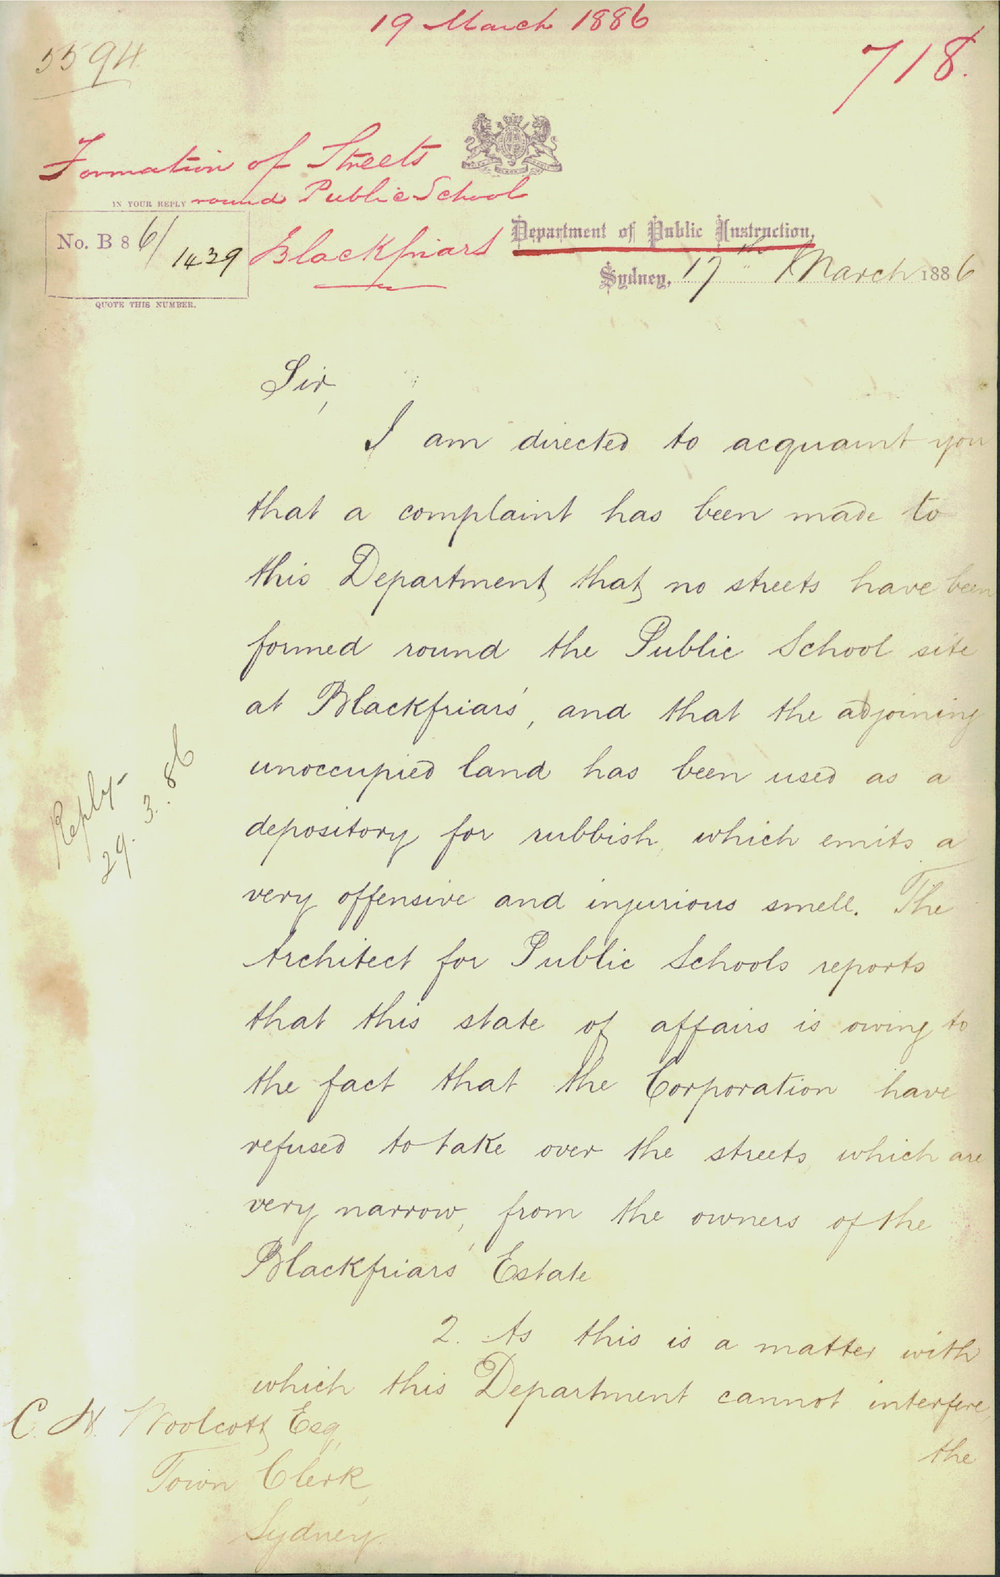 19 March 1886
5594
718.
Formation of Streets
round Public School
Blackfriars
IN YOUR REPLY
No. B 86/1439
QUOTE THIS NUMBER.
Department of Public Instruction,
Sydney, 17th March 1886
Sir,
I am directed to acquaint you
that a complaint has been made to
this Department, that, no streets have been
formed round the Public School site
at Blackfriars', and that the adjoining
unoccupied land has been used as a
depository for rubbish, which emits a
very offensive and injurious smell. The
Architect for Public Schools reports
that this state of affairs is owing to
the fact that the Corporation have
refused to take over the streets, which are
very narrow, from the owners of the
Blackfriars' Estate
2. As this is a matter with
which this Department cannot interfere,
the
Reply
29.3.86
C. H. Woolcott, Esq,
Town Clerk,
Sydney.